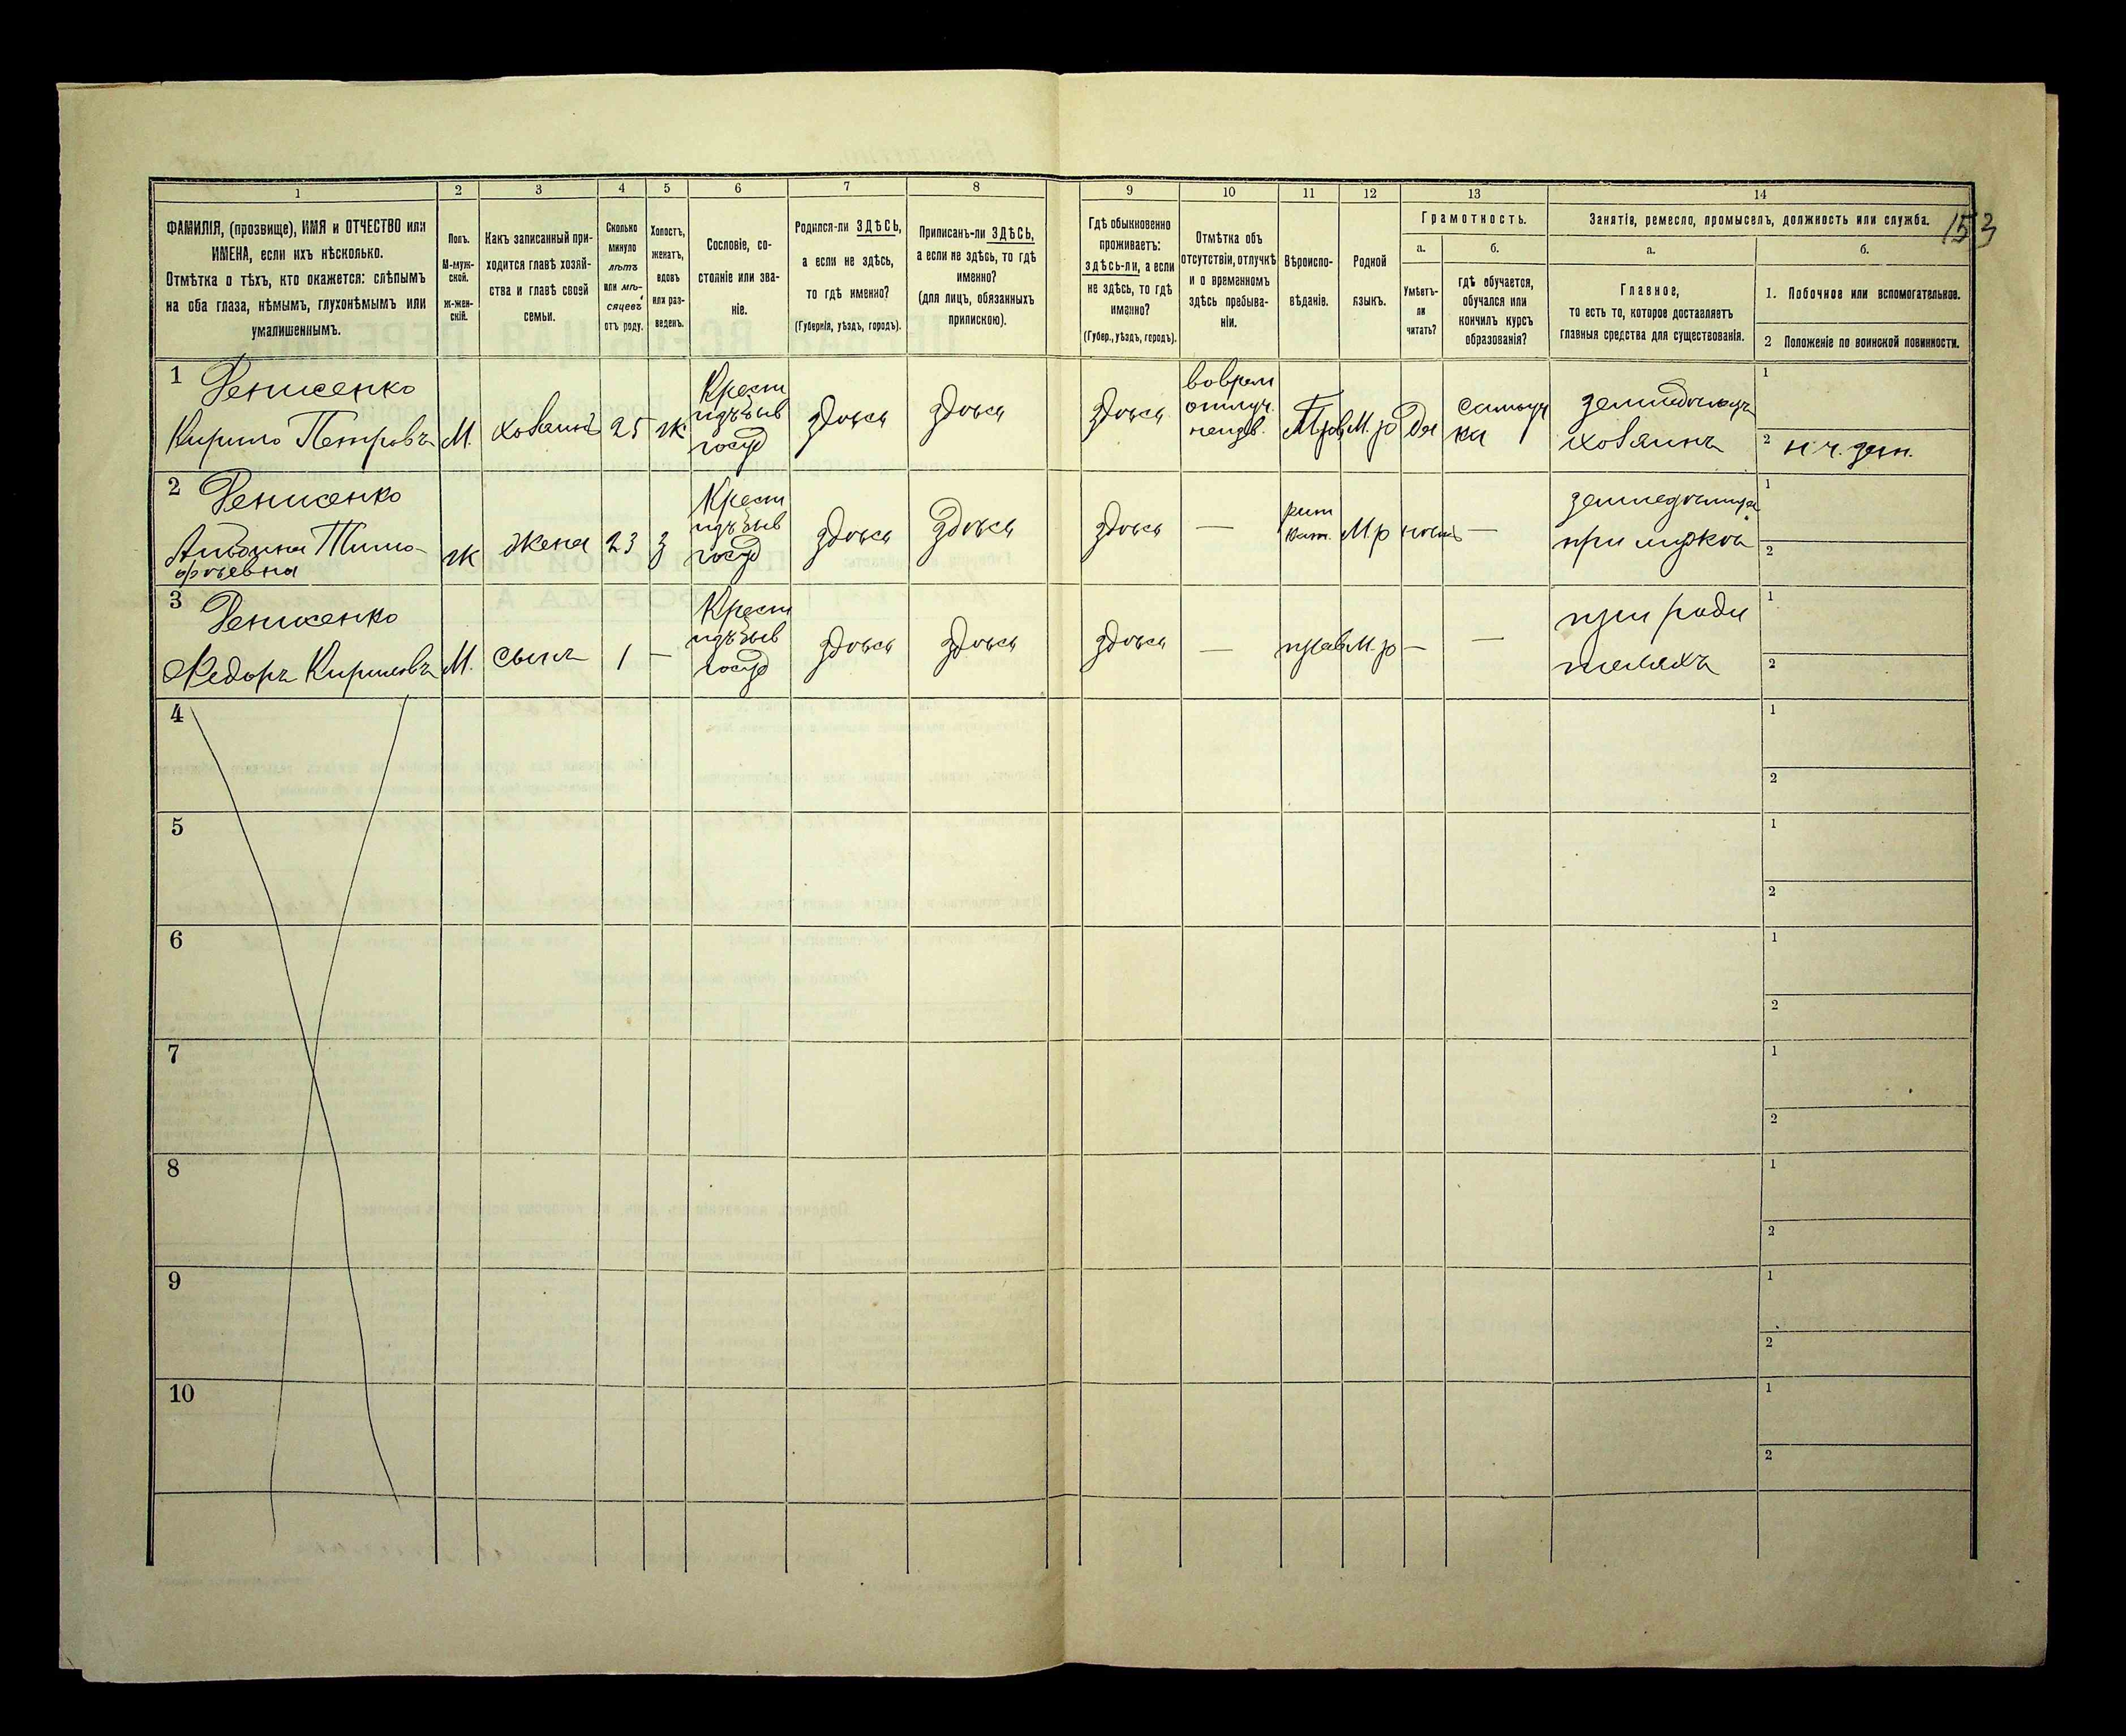 153
1 2 3 4 5 6 7 8 9 10 11 12 13 14
ФАМИЛІЯ, (прозвище), ИМЯ и ОТЧЕСТВО или
ИМЕНА, если ихъ нѣсколько.
Отмѣтка о тѣхъ, кто окажется: слѣпымъ
на оба глаза, нѣмымъ, глухонѣмымъ или
умалишеннымъ.
Полъ.
М-муж-
ской.
Ж-жен-
скій.
Какъ записанный при-
ходится главѣ хозяй-
ства и главѣ своей
семьи.
Сколько
минуло
лѣтъ
или мѣ-
сяцевъ
отъ роду.
Холостъ,
женатъ,
вдовъ
или раз-
веденъ.
Сословіе, со-
стояніе или зва-
ніе.
Родился-ли ЗДѢСЬ,
а если не здѣсь,
то гдѣ именно?
(Губернія, уѣздъ, городъ).
Приписанъ-ли ЗДѢСЬ,
а если не здѣсь, то гдѣ
именно?
(для лицъ, обязанныхъ
припискою).
Гдѣ обыкновенно
проживаетъ:
здѣсь-ли, а если
не здѣсь, то гдѣ
именно?
(Губер., уѣздъ, городъ).
Отмѣтка объ
отсутствіи, отлучкѣ
и о временномъ
здѣсь пребыва-
ніи.
Вѣроиспо-
вѣданіе.
Родной
языкъ.
Грамотность.
а.
Умѣетъ-
ли
читать?
б.
гдѣ обучается,
обучался или
кончилъ курсъ
образованія?
Занятія, ремесло, промыселъ, должность или служба.
а.
Главное,
то есть то, которое доставляетъ
главныя средства для существованія.
б.
1. Побочное или вспомогательное.
2 Положеніе по воинской повинности.
1 Денисенко
Кирило Петровъ
М.
хозяинъ
25
ж
Крест
изъ быв
госуд
здѣсь
здѣсь
здѣсь
Прав
М. р
Да
самоуч
ки
хозяинъ
1
2
2 Денисенко
Тимо-
феевна
ж
жена
23
з
Крест
изъ быв
госуд
здѣсь
здѣсь
здѣсь
—
рим
кат.
М. р
—
при мужѣ
1
2
3 Денисенко
Федоръ Кириловъ
М.
сынъ
1
—
Крест
изъ быв
госуд
здѣсь
здѣсь
здѣсь
—
прав
М. р
—
—
при роди
теляхъ
1
2
4
1
2
5
1
2
6
1
2
7
1
2
8
1
2
9
1
2
10
1
2